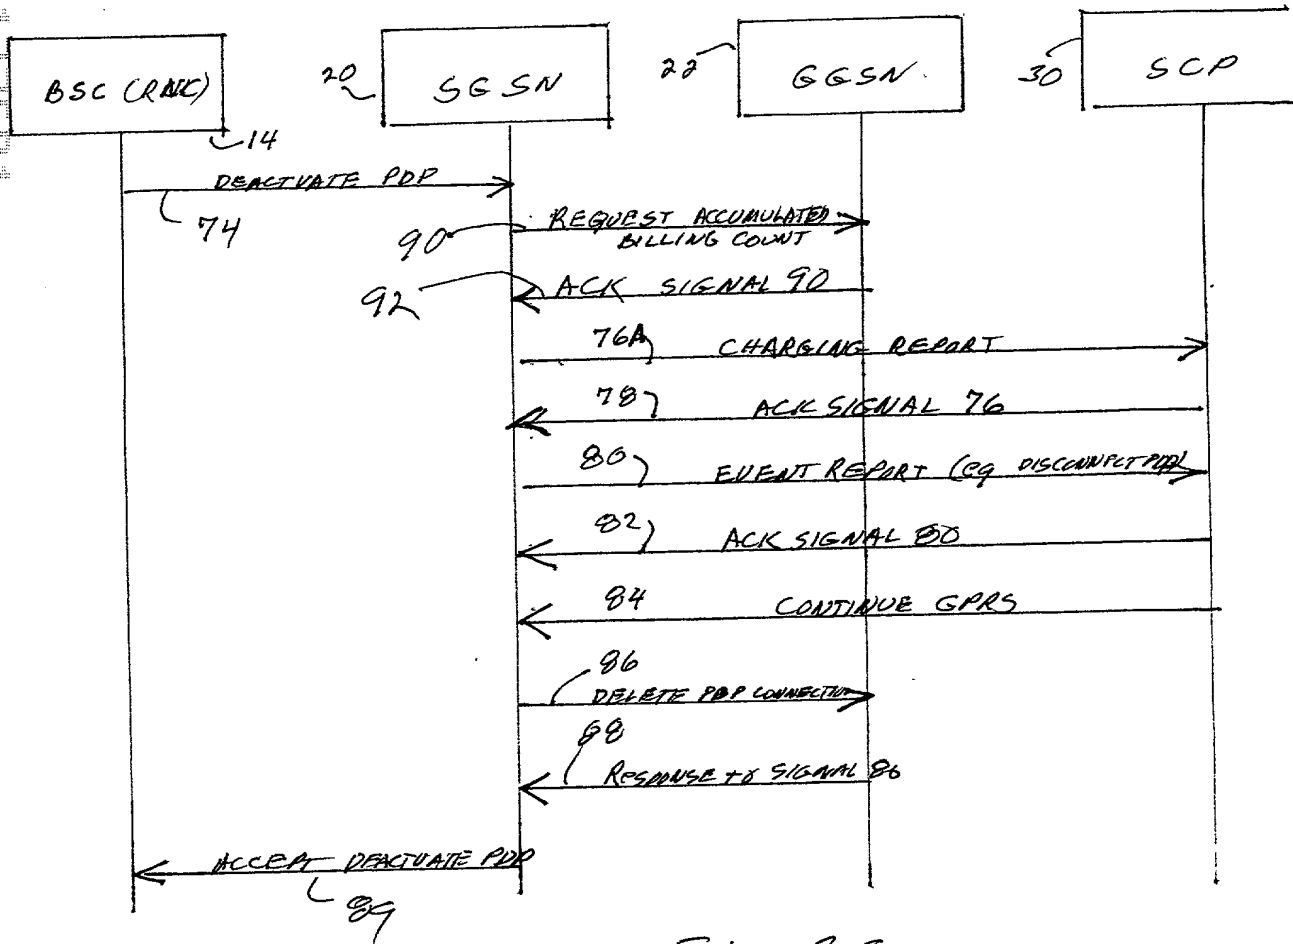 BSC (RNC)
14
20
SGSN
22
GGSN
30
SCP
DEACTIVATE PDP
74
90
REQUEST ACCUMULATED
BILLING COUNT
92
ACK SIGNAL 90
76A
CHARGING REPORT
78
ACK SIGNAL 76
80
EVENT REPORT (eg DISCONNECT PDP)
82
ACK SIGNAL 80
84
CONTINUE GPRS
86
DELETE PDP CONNECTION
88
RESPONSE to SIGNAL 86
ACCEPT DEACTIVATE PDP
89